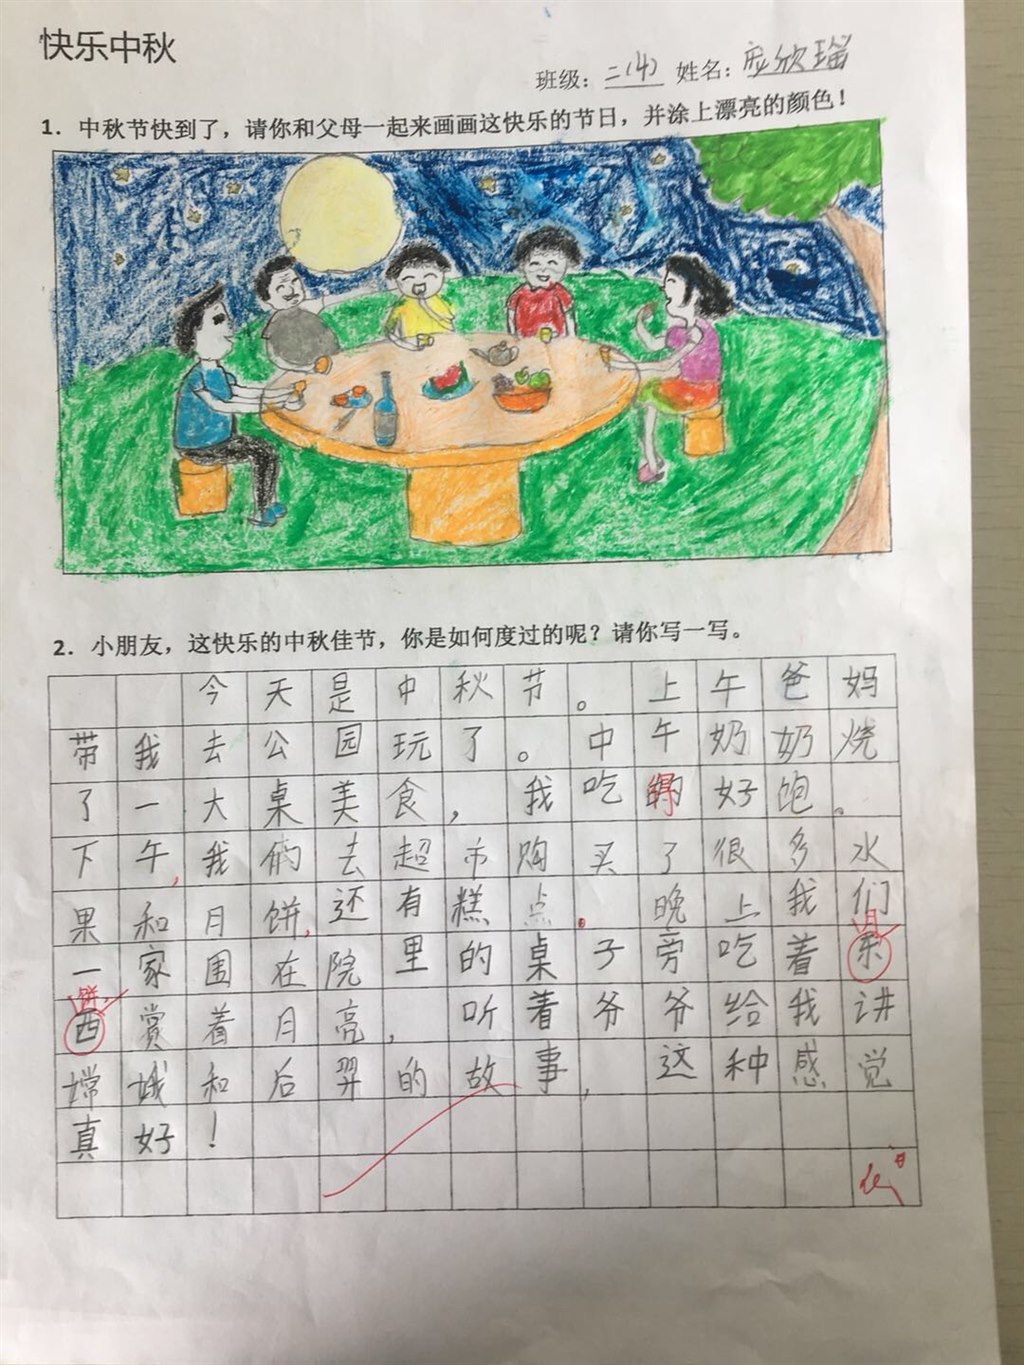 快乐中秋
班级：二(4) 姓名：
1．中秋节快到了，请你和父母一起来画画这快乐的节日，并涂上漂亮的颜色！
2．小朋友，这快乐的中秋佳节，你是如何度过的呢？请你写一写。
今天是中秋节。上午爸妈
带我去公园玩了。中午奶奶烧
了一大桌美食，我吃得好饱。
下午，我们去超市购买了很多水
果和月饼，还有糕点。晚上我们
月
一家围在院里的桌子旁吃着东
饼，
西赏着月亮，听着爷爷给我讲
嫦娥和后羿的故事，这种感觉
真好！